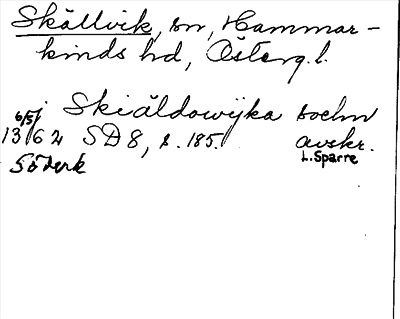 Skällvik, sn, Hammar-
kinds hd, Österg. l.
j Skiäldowijka sochn
6/5
1362 SD 8, s. 185. avskr.
Söderk L. Sparre